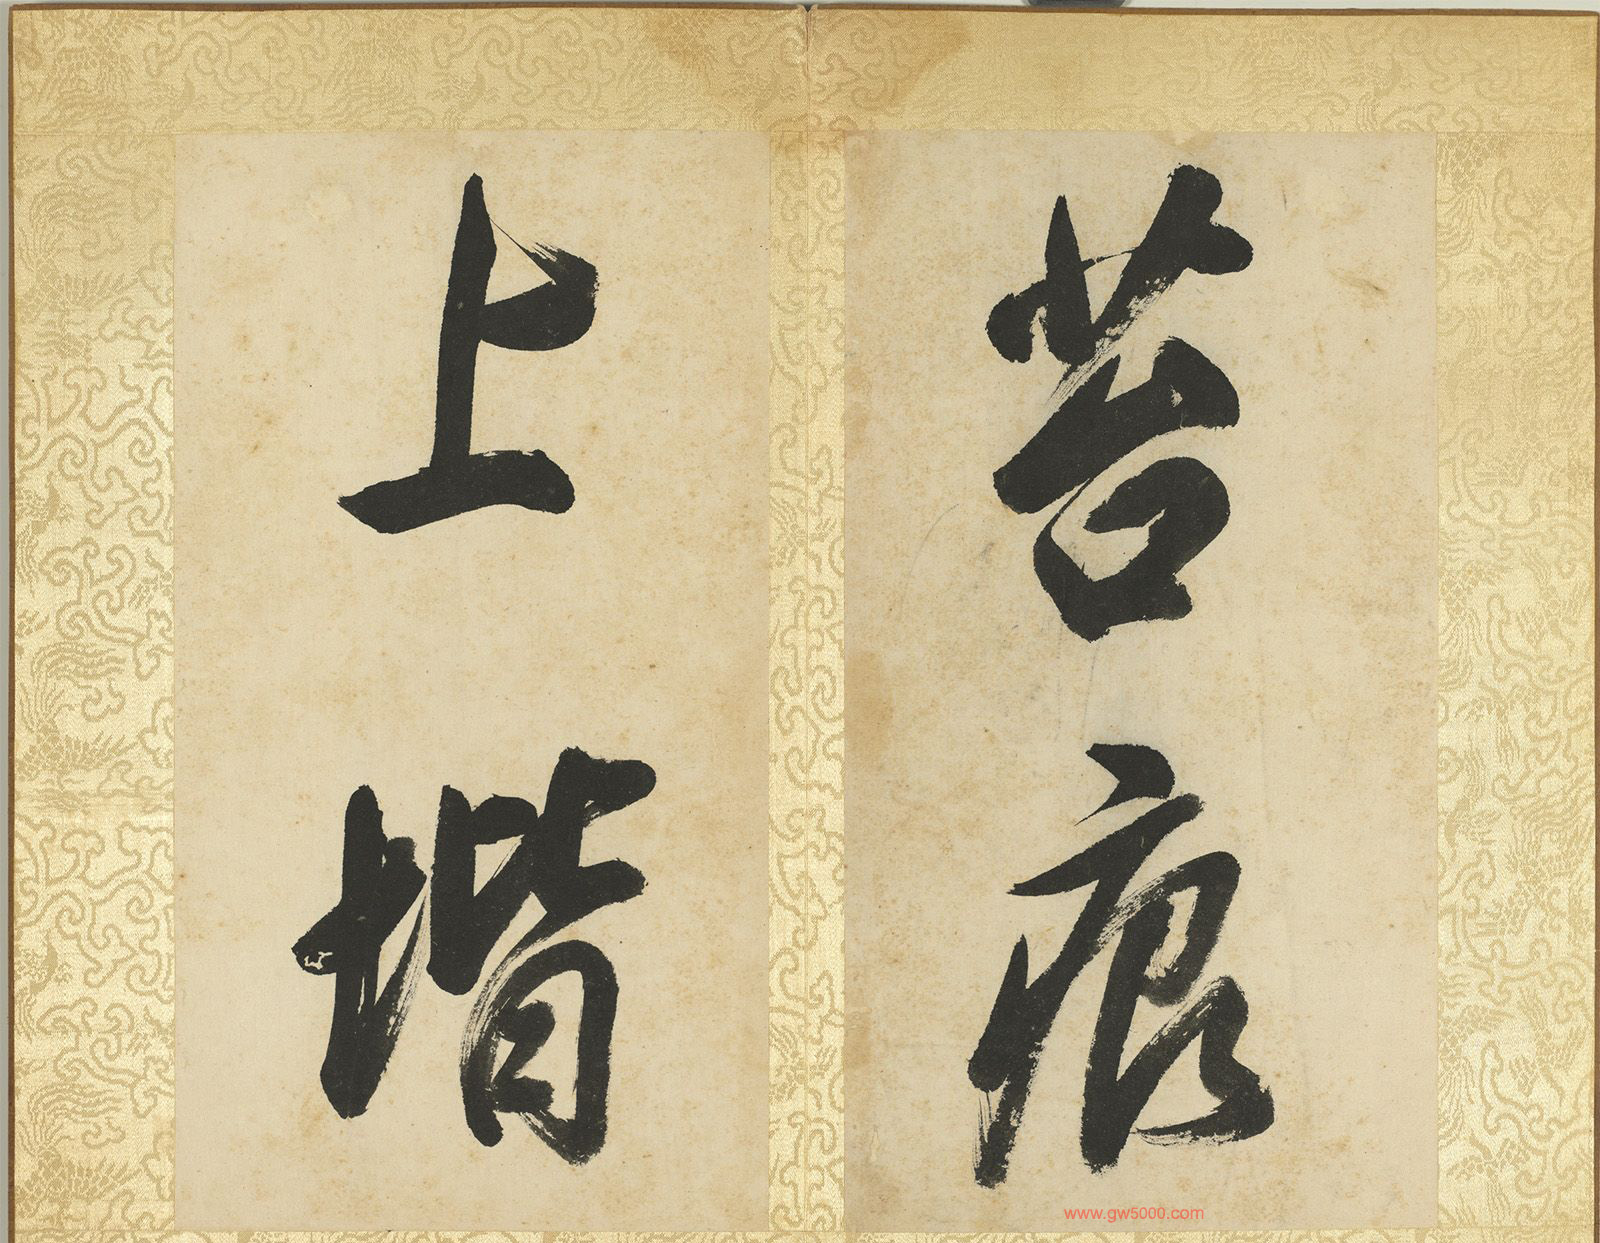 苔痕
上堦
www.gw5000.com